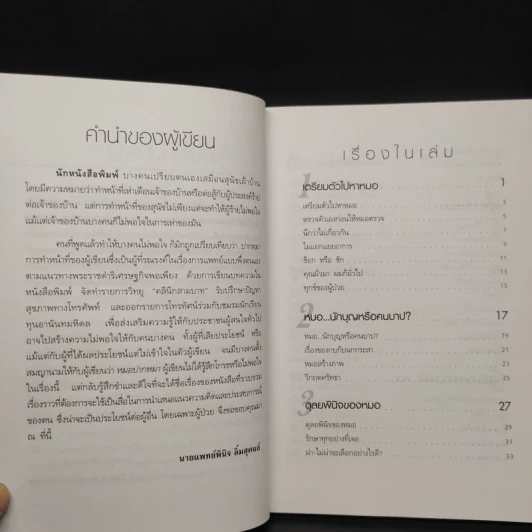 คำนำของผู้เขียน
นักหนังสือพิมพ์ บางคนเปรียบตนเองเสมือนสุนัขเฝ้าบ้าน
โดยมีความหมายว่า ทำหน้าที่เห่าเตือนเจ้าของบ้านหรือต่อสู้กับผู้ประสงค์ร้าย
ต่อเจ้าของบ้าน แต่การทำหน้าที่ของสุนัขไม่เพียงแต่จะทำให้ผู้ร้ายไม่พอใจ
แม้แต่เจ้าของบ้านบางคนก็ไม่พอใจในการเห่าของมัน
คนที่พูดแล้วทำให้บางคนไม่พอใจ ก็มักถูกเปรียบเทียบว่า ปากหมา
การทำหน้าที่ของผู้เขียนซึ่งเป็นผู้ที่รณรงค์ในเรื่องการแพทย์แบบพึ่งตนเอง
ตามแนวทางพระราชดำริเศรษฐกิจพอเพียง ด้วยการเขียนบทความใน
หนังสือพิมพ์ จัดทำรายการวิทยุ "คลินิกสามบาท" รับปรึกษาปัญหา
สุขภาพทางโทรศัพท์ และออกรายการโทรทัศน์ร่วมกับชมรมนักเรียน
ทุนอานันทมหิดล เพื่อส่งเสริมความรู้ให้กับประชาชนผู้สนใจทั่วไป
อาจไปสร้างความไม่พอใจให้กับคนบางคน ทั้งผู้ที่เสียประโยชน์ หรือ
แม้แต่กับผู้ที่ได้ผลประโยชน์แต่ไม่เข้าใจในตัวผู้เขียน จนมีบางคนตั้ง
สมญานามให้กับผู้เขียนว่า หมอปากหมา ผู้เขียนไม่ได้รู้สึกโกรธหรือไม่พอใจ
ในเรื่องนี้ แต่กลับรู้สึกขำและดีใจที่จะได้ชื่อเรื่องของหนังสือที่รวบรวม
เรื่องราวที่ต้องการจะใช้เป็นสื่อในการนำเสนอแนวความคิดและประสบการณ์
ของตน ซึ่งน่าจะเป็นประโยชน์ต่อผู้อื่น โดยเฉพาะผู้ป่วย จึงขอขอบคุณมา
ณ ที่นี้
นายแพทย์พินิจ ลิ้มสุคนธ์
เรื่องในเล่ม
1 เตรียมตัวไปหาหมอ 1
เตรียมตัวไปหาหมอ 3
ตรวจตัวเองก่อนให้หมอตรวจ 5
นึกว่าไม่เกี่ยวกัน 7
ไม่แยกแยะอาการ 9
ช็อก หรือ ชัก 11
คุณมัวมา ผมก็มัวไป 13
ทุกข์ของผู้ป่วย 15
2 หมอ...นักบุญหรือคนบาป? 17
หมอ...นักบุญหรือคนบาป? 19
เรื่องของกบกับนกกระสา 21
หมอสร้างภาพ 23
วิกฤตศรัทธา 25
3 ดุลยพินิจของหมอ 27
ดุลยพินิจของหมอ 29
รักษาทุกอย่างที่เจอ 31
ผ่า-ไม่ผ่าจะเลือกอย่างไรดี? 33